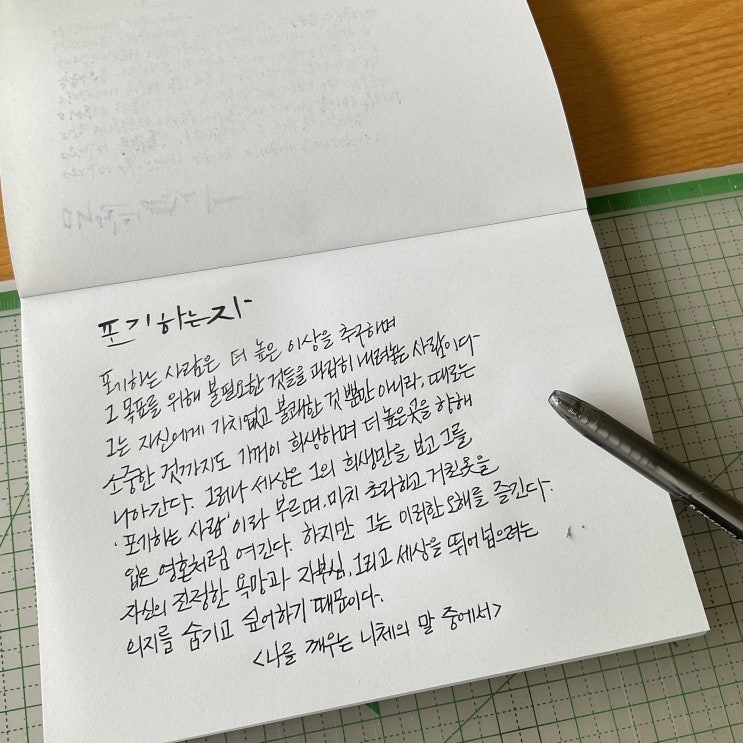 포기하는자.
포기하는 사람은 더 높은 이상을 추구하며
그 목표를 위해 불필요한 것들을 과감히 내려놓는 사람이다
그는 자신에게 가치없고 불쾌한 것 뿐만 아니라, 때로는
소중한 것까지도 기꺼이 희생하며 더 높은곳을 향해
나아간다. 그러나 세상은 그의 희생만을 보고 그를
'포기하는 사람'이라 부르며, 마치 초라하고 거친옷을
입은 영혼처럼 여긴다. 하지만 그는 이러한 오해를 즐긴다.
자신의 진정한 욕망과 자부심, 그리고 세상을 뛰어넘으려는
의지를 숨기고 싶어하기 때문이다.
<나를 깨우는 니체의 말 중에서>